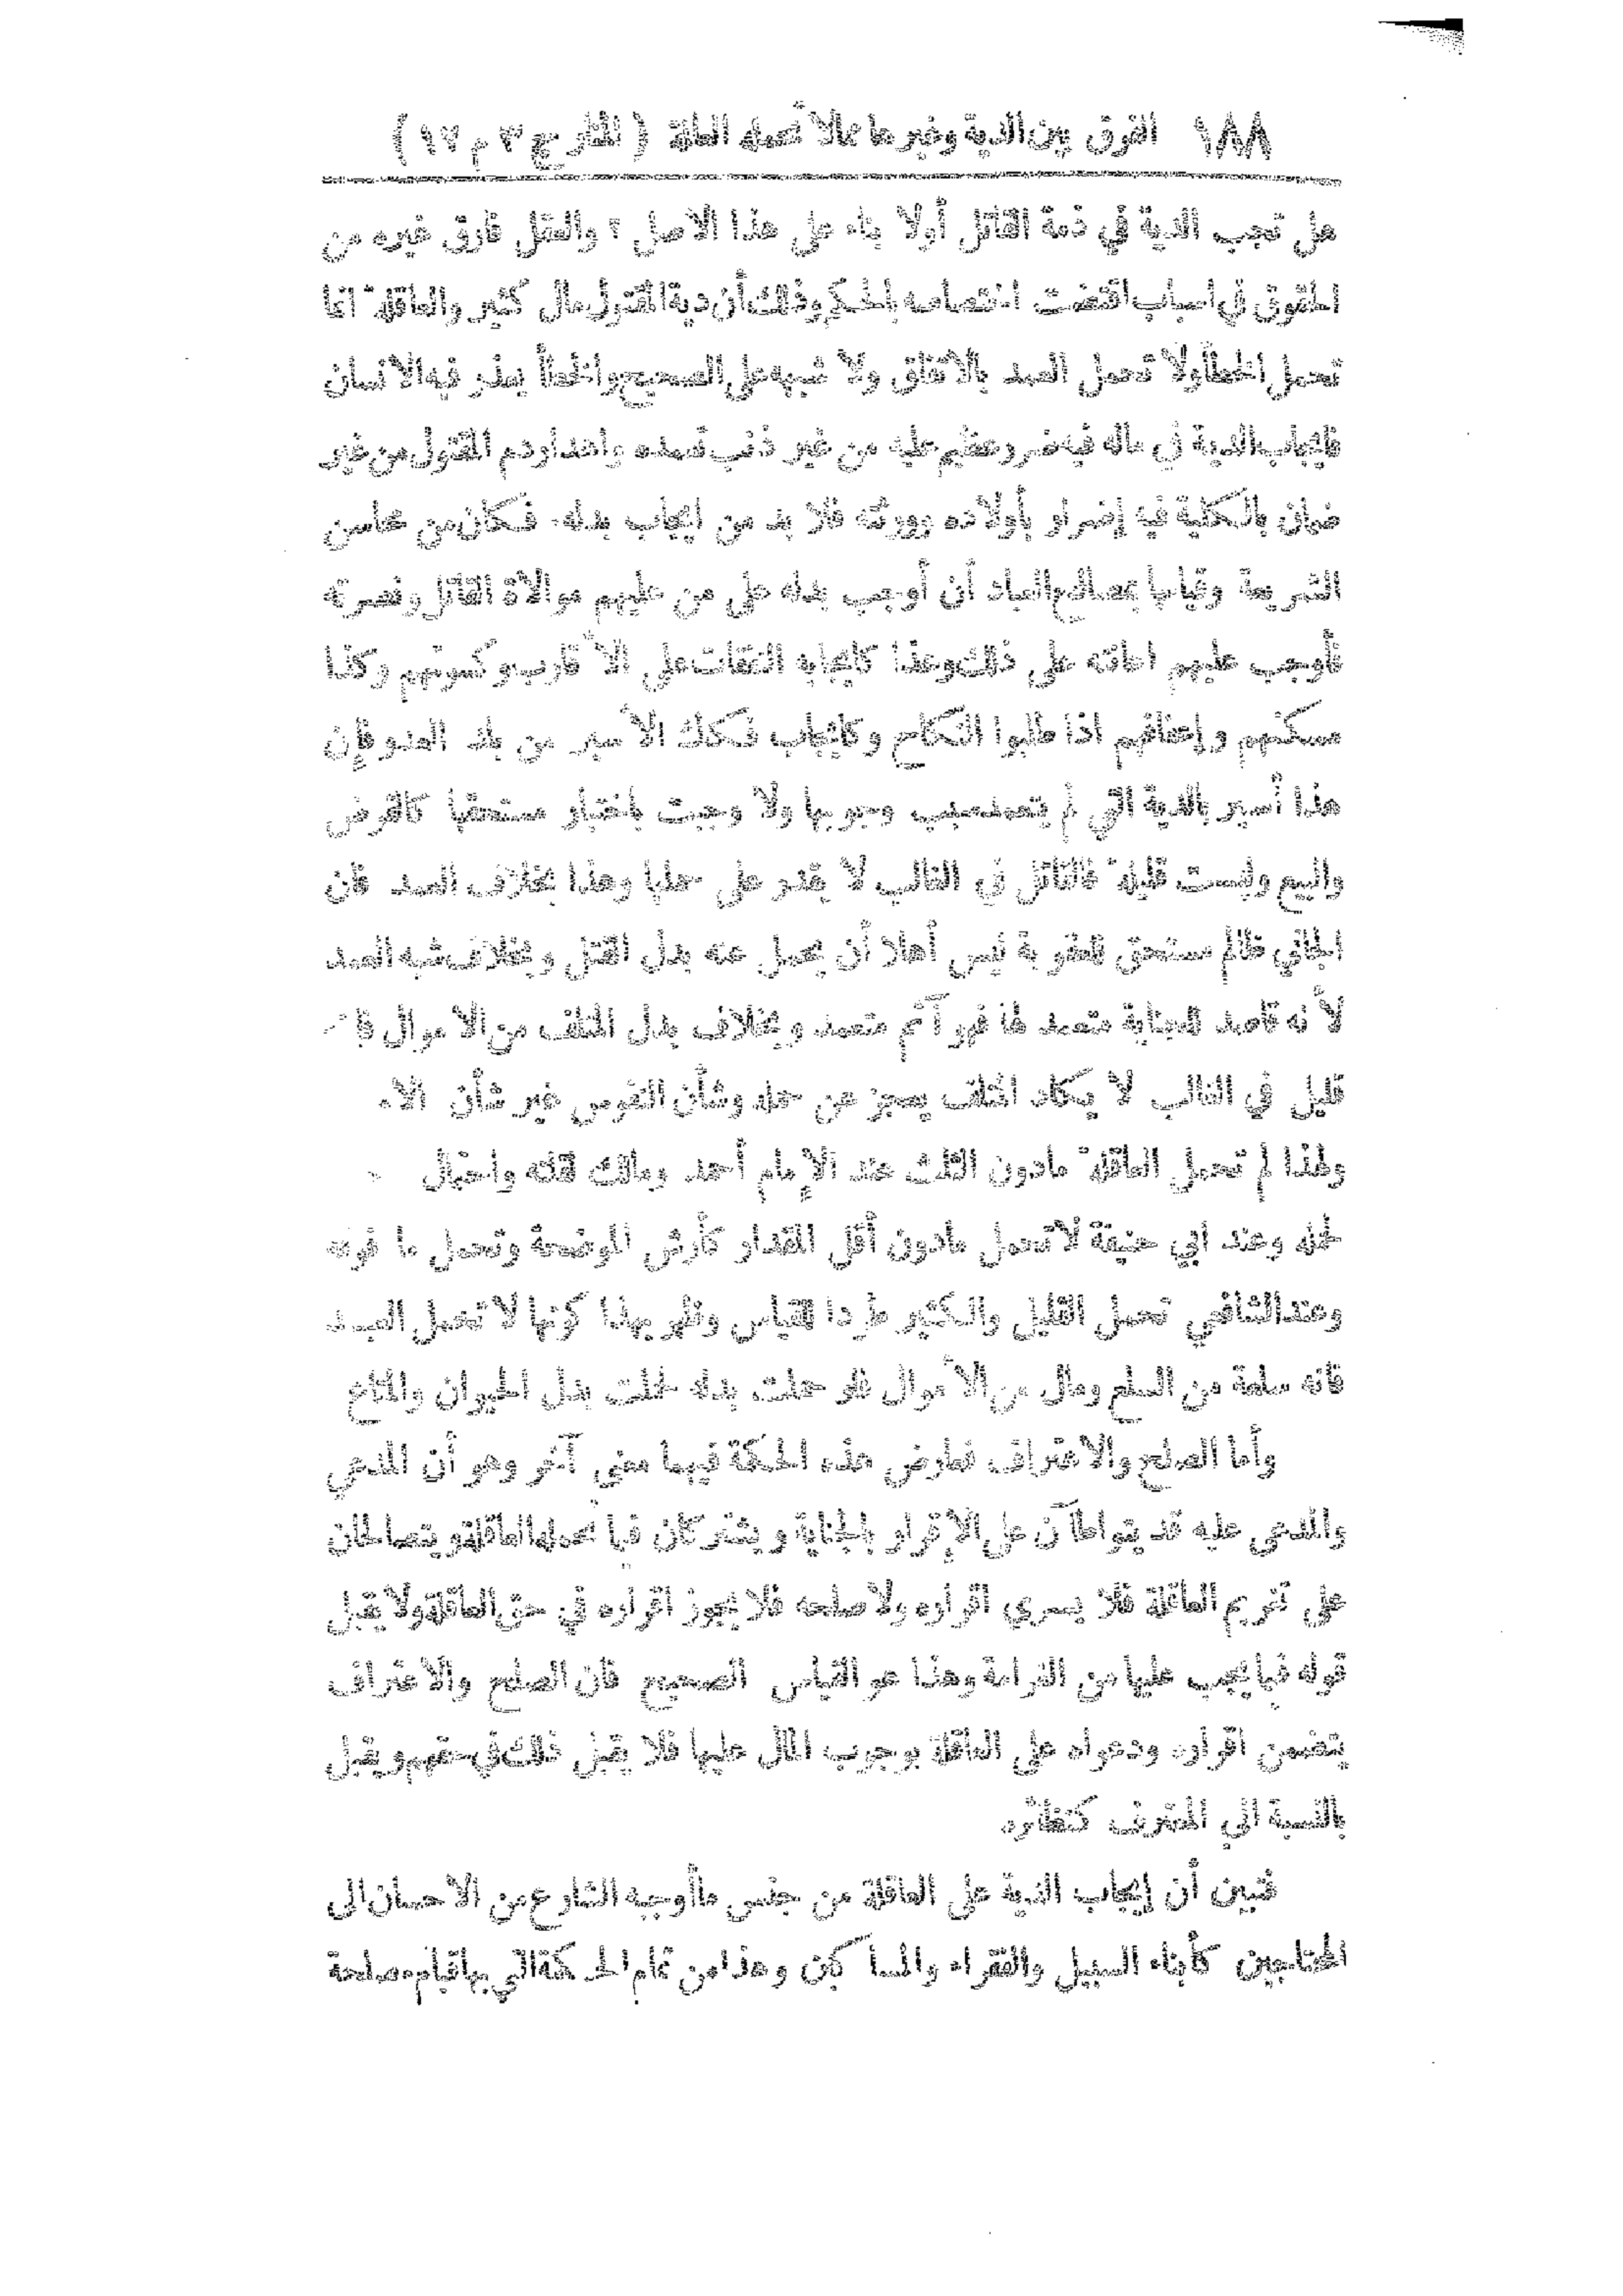 ١٨٨ الفرق بين الدية وغيرها مما لا تحمله العاقلة ( المنار ج ٣ م ١٢ )
هل تجب الدية في ذمة القاتل أولا بناء على هذا الاصل ؟ والعقل فارق غيره من
الحقوق في اسباب اقتضت اختصاصه بالحكم وذلك أن دية المقتول مال كثير والعاقلة انما
تحمل الخطأ ولا تحمل العمد بالاتفاق ولا شبهه على الصحيح والخطأ يعذر فيه الانسان
فايجاب الدية في ماله فيه ضرر عظيم عليه من غير ذنب تعمده واهدار دم المقتول من غير
ضمان بالكلية فيه إضرار بأولاده وورثته فلا بد من ايجاب بدله . فكان من محاسن
الشريعة وقيامها بمصالح العباد أن أوجب بدله على من عليهم موالاة القاتل ونصرته
فأوجب عليهم اعانته على ذلك وهذا كايجابه النفقات على الأقارب وكسوتهم وكذا
مسكنهم وإعفافهم اذا طلبوا النكاح وكايجاب فكاك الأسير من بلد العدو فإن
هذا أسير بالدية التي لم يتعمد سبب وجوبها ولا وجبت باختيار مستحقها كالقرض
والبيع وليست قليلة فالقاتل في الغالب لا يقدر على حملها وهذا بخلاف العمد فان
الجاني ظالم مستحق للعقوبة ليس أهلا أن يحمل عنه بدل القتل وبخلاف شبه العمد
لأنه قاصد للجناية متعمد لها فهو آثم متعمد وبخلاف بدل المتلف من الاموال فا
قليل في الغالب لا يكاد المتلف يعجز عن حمله وشأن النفوس غير شأن الا
ولهذا لم تحمل العاقلة مادون الثلث عند الإمام أحمد ومالك لقلته واحتمال
لحمله وعند ابي حنيفة لا تحمل مادون أقل المقدار كأرش الموضحة وتحمل ما فوقه
وعند الشافعي تحمل القليل والكثير طردا للقياس وظهر بهذا كونها لا تحمل العبد
فانه سلعة من السلع ومال من الأموال فلو حملت بدله لحملت بدل الحيوان والمتاع
وأما الصلح والاعتراف فعارض هذه الحكمة فيهما معنى آخر وهو أن المدعي
والمدعى عليه قد يتواطآن على الإقرار بالجناية ويشتركان فيما تحمله العاقلة ويتصالحان
على تغريم العاقلة فلا يسري اقراره ولا صلحه فلا يجوز اقراره في حق العاقلة ولا يقبل
قوله فيما يجب عليها من الغرامة وهذا هو القياس الصحيح فان الصلح والاعتراف
يتضمن اقراره ودعواه على العاقلة بوجوب المال عليها فلا يقبل ذلك في حقهم ويقبل
بالنسبة الى المعترف كنظائره
فتبين أن إيجاب الدية على العاقلة من جنس ما أوجبه الشارع من الاحسان الى
المحتاجين كأبناء السبيل والفقراء والمساكين وهذا من تمام الحكمة التي بها قيام مصلحة